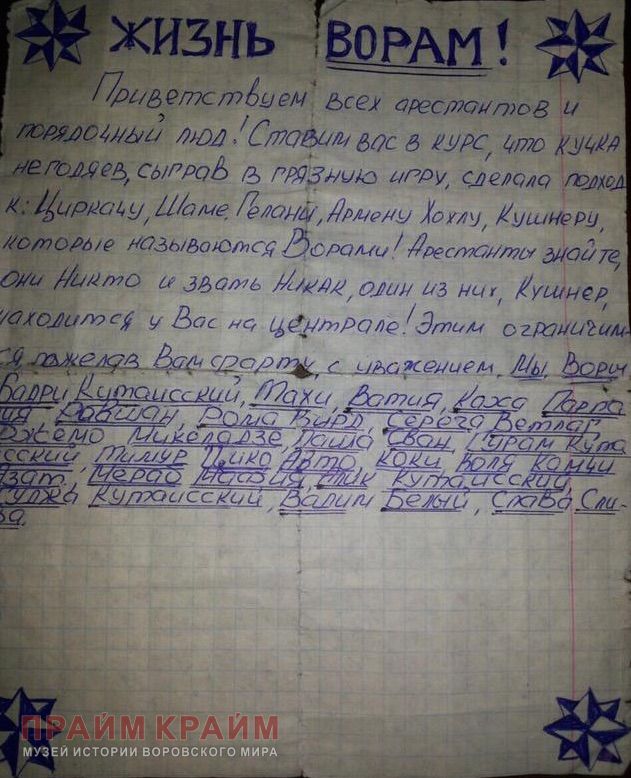 ЖИЗНЬ ВОРАМ!
Приветствуем всех арестантов и
порядочный люд! Ставим вас в курс, что кучка
негодяев, сыграв в грязную игру, сделала подход
к: Циркачу, Шаме, Гелани, Армену Хохлу, Кушнеру,
которые называются Ворами! Арестанты знайте,
они Никто и звать Никак, один из них, Кушнер,
находится у Вас на централе! Этим ограничим-
ся, пожелав Вам фарту, с уважением, Мы Воры
Бадри Кутаисский, Махи, Ватия, Каха Парпа
лия, Равшан, Рома Вирд, Серёга Ветлаг
Джемо Микеладзе, Паша Сван, Гурам Кута
сский, Тимур, Пико, Авто, Коки, Коля, Камчи
Азат, Мераб Мафия, Мик Кутаисский,
Кутаисский, Вадим Белый, Слава Сли-
ва.
ПРАЙМ КРАЙМ
МУЗЕЙ ИСТОРИИ ВОРОВСКОГО МИРА